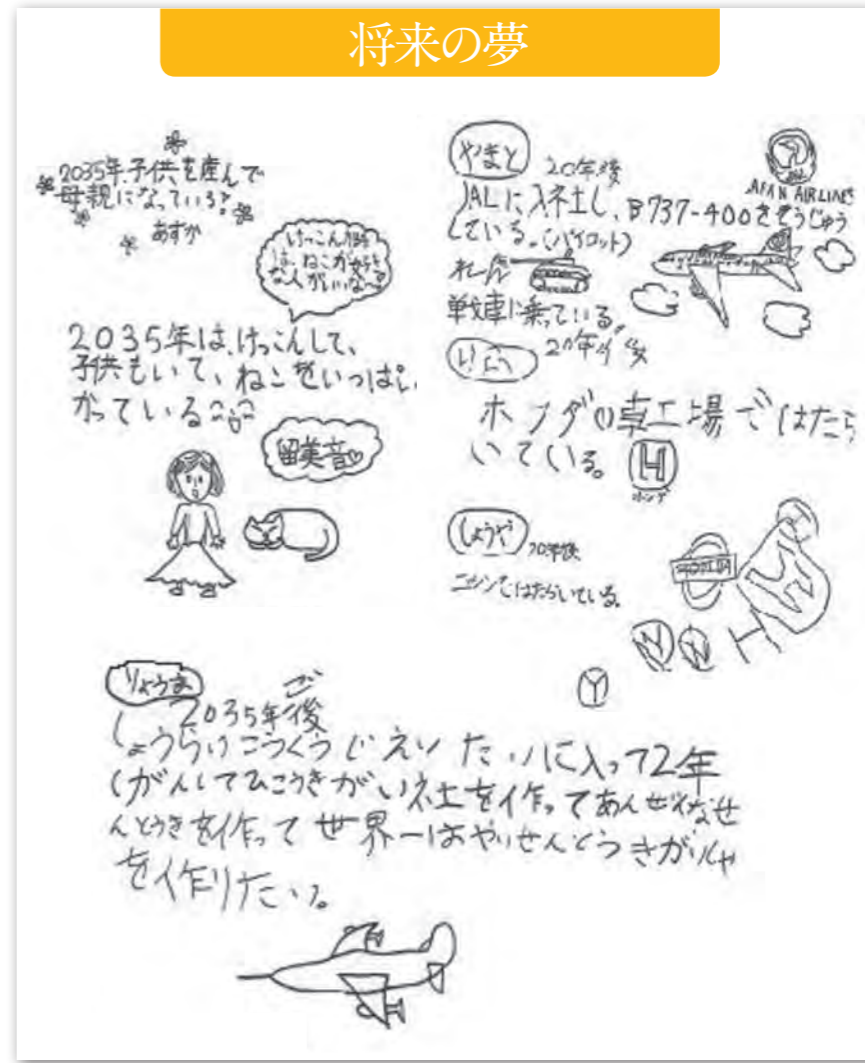 将来の夢
2035年、子供を産んで
母親になっている?
あすか
けっこん相手
は、ねこが好き
な人がいいな〜
2035年は、けっこんして、
子供もいて、ねこをいっぱい
かっている
留美音♡
やまと
20年後
JALに入社し、B737-400をそうじゅう
している。(パイロット)
JAPAN AIRLINES
戦車に乗っている。
20年後
ホンダの車工場ではたら
いている。
H
ホンダ
しょうや
20年後
ニッサンではたらいている。
H
Y
りょうま
2035年後
ご
しょうらいこうくうじえいたいに入って2年
んとうきを作って世界一はやいせんとうきがいしゃ
を作りたい。